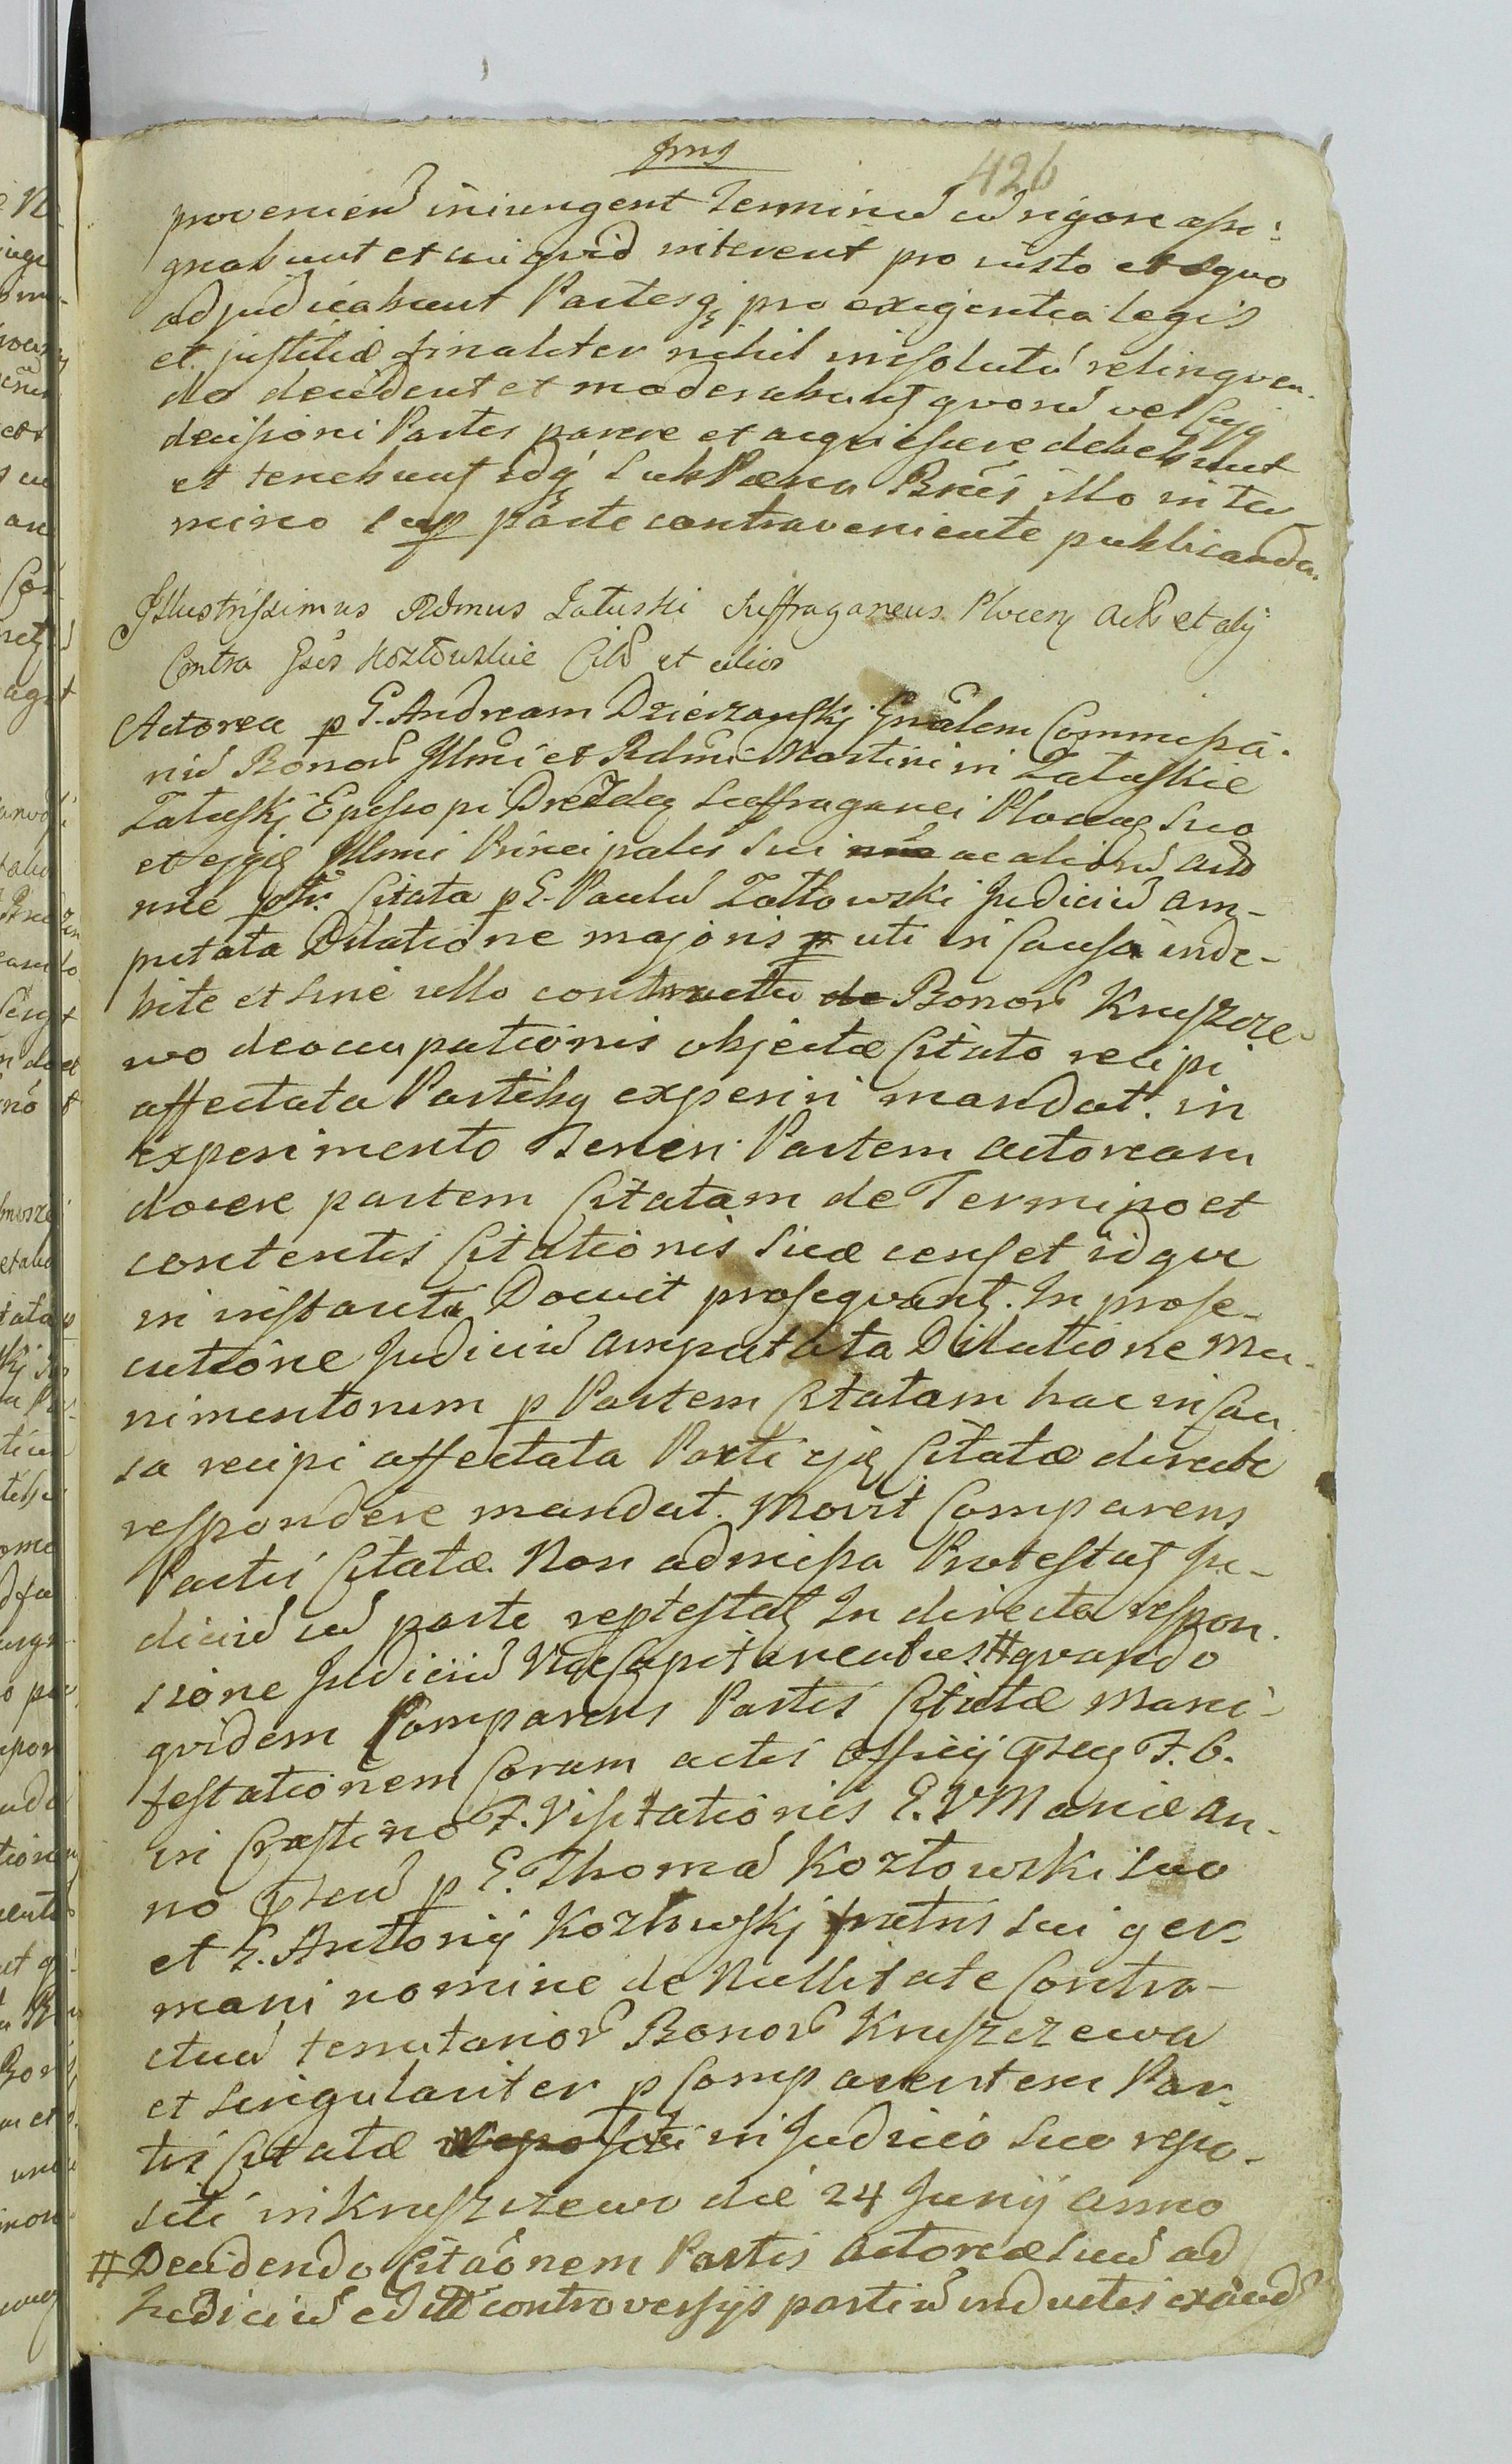 426
provenien̄ iniungent Terminū cū rigore assi-
gnabunt et cui quid interent pro iusto et eqvo
adjudicabunt Partesq; pro exigentia legis
et justitiæ finaliter nihil insolutū relinqven-
do decident et moderabunt qvorū vel cuj9
decisioni Partes parere et acqviescere debebunt
et tenebunt idq; sub Pæna Bnis illo in ter-
mino sup parte contraveniente publicanda.
Jllustrissimus Rdmus Załuski Suffraganeus Płocen Act et alij
Contra Gsos Kozłowskie Citt et alios
Actorea p G. Andream Dzierzanskj Gnalem Commissa-
riū Bonor Jllmi et Rdmi Martini in Załuskie
Załuskj Episcopi Suffraganei Plocen suo
et ejq; Jllmi Principalis sui ac aliorū Actt
nne Citata p G. Paulū Zołtowski Judiciū am-
putata Dilatione majoris uti in Causa inde-
bite et sine ullo contractu de Bonor Kruszcze-
wo deoccupationis objectæ Citato recipi
affectata Partibq experiri mandat. in
experimento Teneri Partem actoream
docere partem Citatam de Termino et
contentis Citationis suæ censet idque
in instanti Docuit prosequant. In prose-
cutione Judiciū amputata Dilatione Mu-
nimentorum p Partem Citatam hac in Cau
sa recipi affectata Parti ejq Citatæ directe
respondere mandat. Movit Comparens
Partis Citatæ. Non admissa Protestat Ju-
diciū cū parte reptestat In directa respon-
sione Judiciū ViceCapitaneale # qvando
qvidem Comparens Partis Citatæ Mani-
festationem Coram actis Officij F. 6.
in Crastino F. Visitationis B. V Mariæ an-
no p G. Thomā Kozłowski suo
et G. Antonij Kozłowskj fratris sui ger-
mani nomine de Nullitate Contra-
ctus tenutarior Bonor Kruszczewa
et singulariter p Comparentem Par-
tis Citatæ in Judicio suo repo-
siti in Kruszczewo die 24 Junij anno
# Decidendo Citaōnem Partis Actoreæ suū ad
Judiciū controversijs partiū inductis